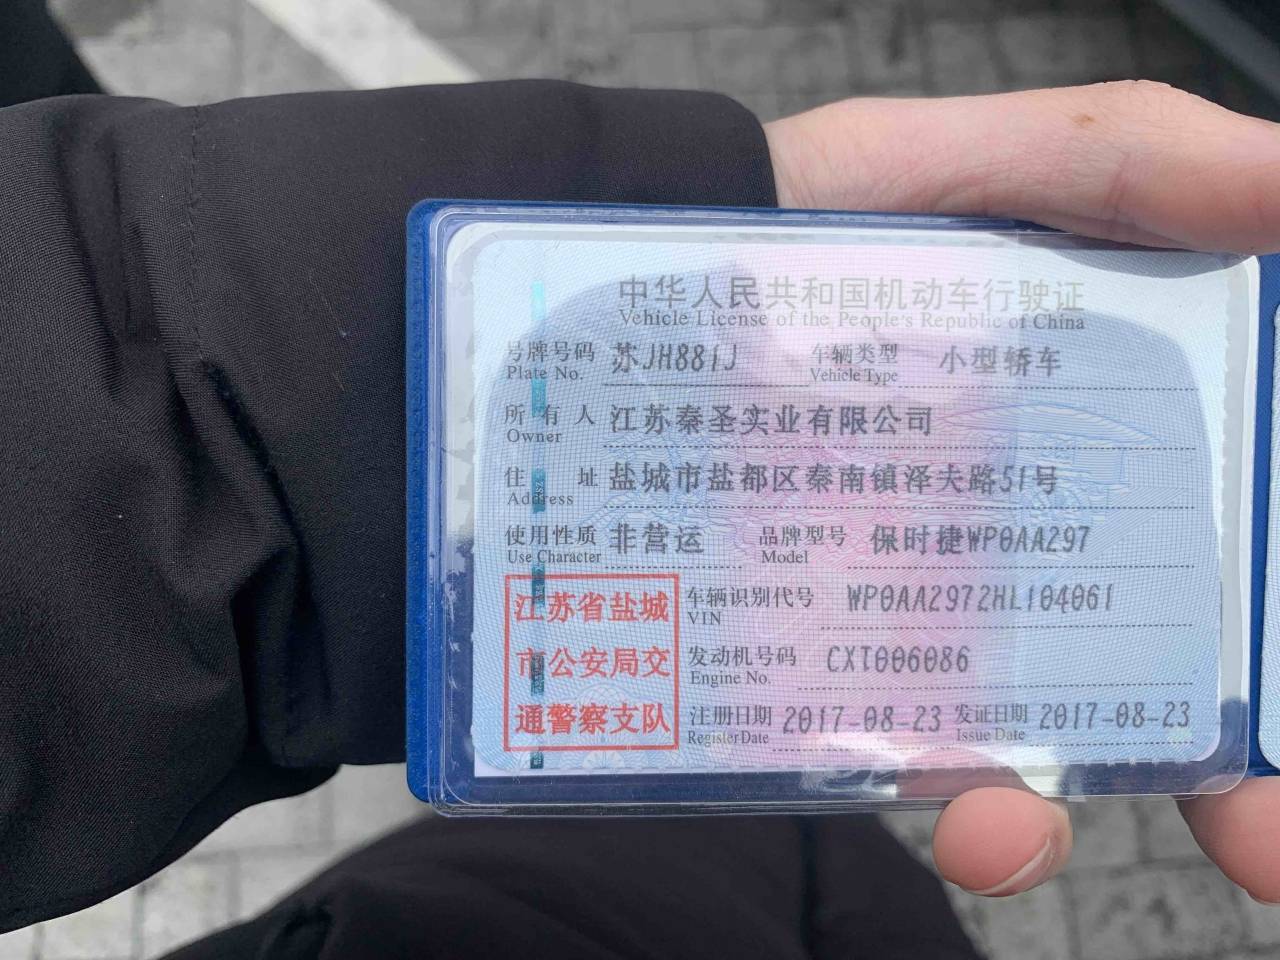 中华人民共和国机动车行驶证
Vehicle License of the People's Republic of China
号牌号码 苏JH881J 车辆类型 小型轿车
Plate No. Vehicle Type
所有人 江苏秦圣实业有限公司
Owner
住址 盐城市盐都区秦南镇泽夫路51号
Address
使用性质 非营运 品牌型号 保时捷WP0AA297
Use Character Model
江苏省盐城
市公安局交
通警察支队
车辆识别代号 WP0AA2972HL104061
VIN
发动机号码 CXT006086
Engine No.
注册日期 2017-08-23 发证日期 2017-08-23
Register Date Issue Date